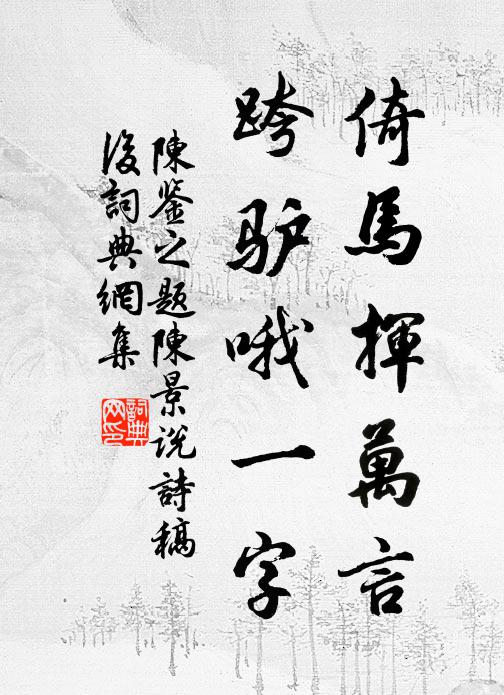 倚馬揮萬言
跨驴哦一字
陳鉴之题陳景说詩稿
後詞典網集
詞典网印